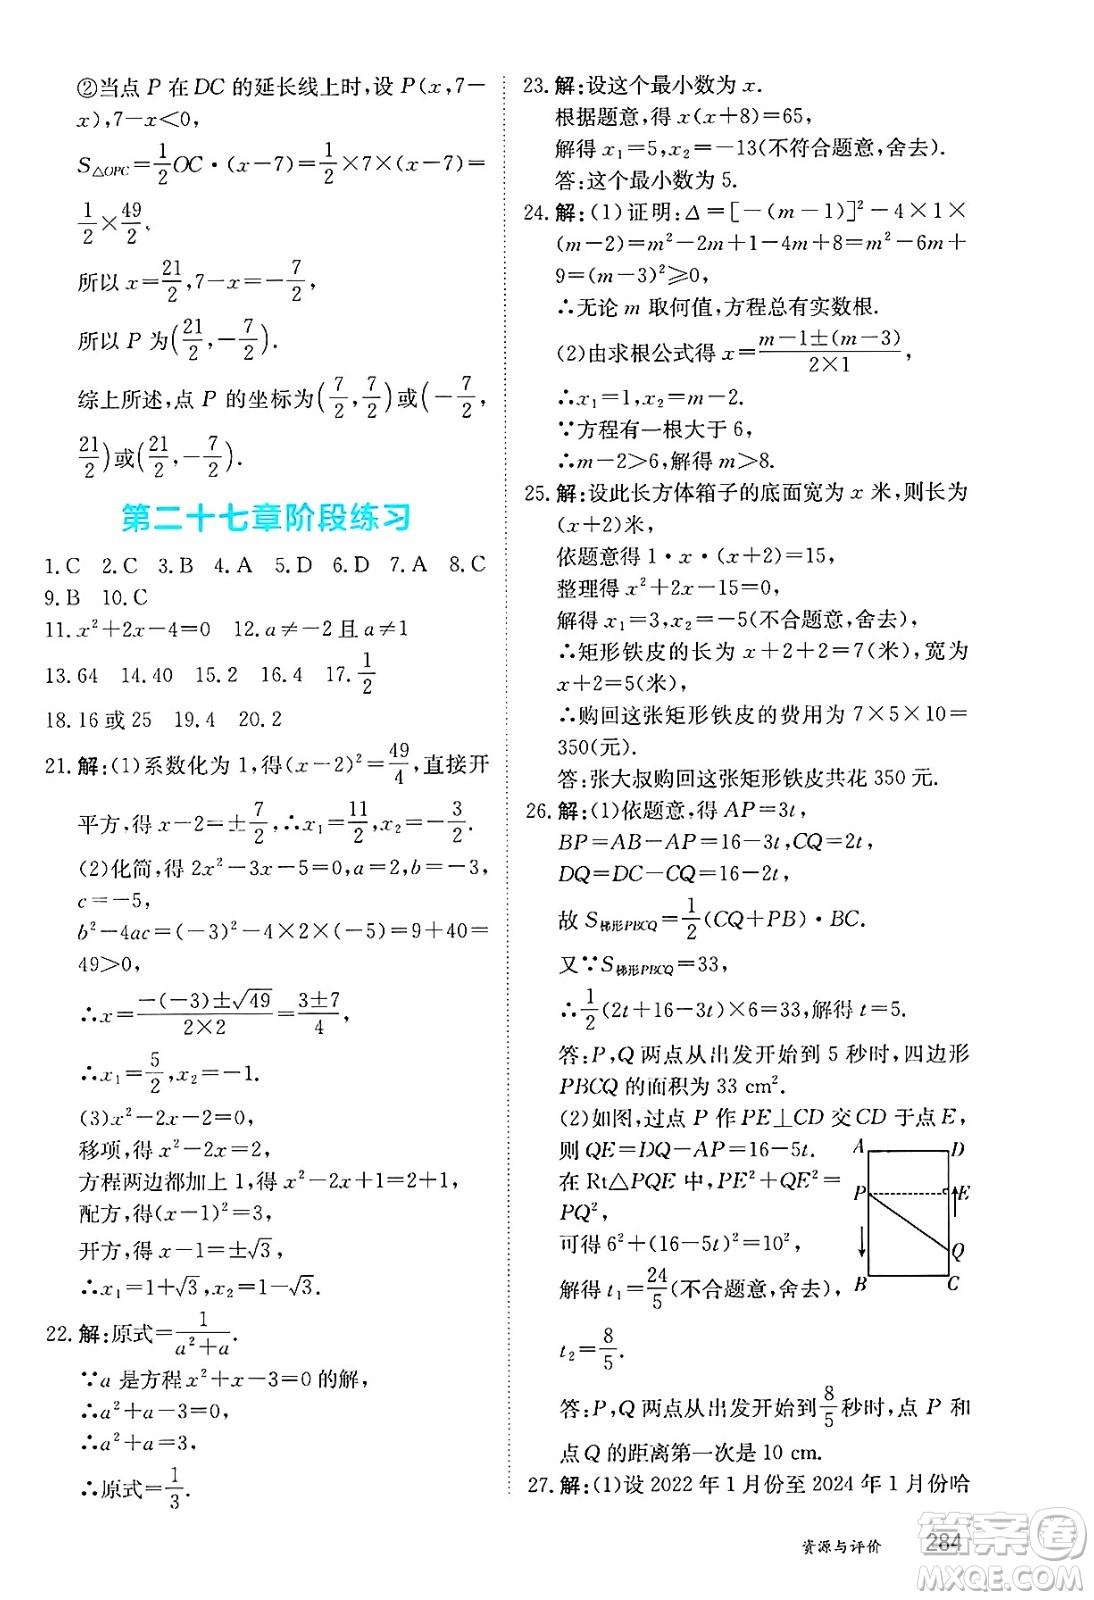 ②当点 P 在 DC 的延长线上时,设 P(x,7－
x),7－x<0,
S△OPC=1/2 OC·(x－7)=1/2×7×(x－7)=
1/2×49/2.
所以 x=21/2,7－x=－7/2,
所以 P 为(21/2,－7/2).
综上所述,点 P 的坐标为(7/2,7/2)或(－7/2,
21/2)或(21/2,－7/2).
第二十七章阶段练习
1.C 2.C 3.B 4.A 5.D 6.D 7.A 8.C
9.B 10.C
11.x²+2x－4=0 12.a≠－2 且 a≠1
13.64 14.40 15.20% 16.4 17.1/2
18.16 或 25 19.4 20.2
21.解:(1)系数化为 1,得(x－2)²=49/4,直接开
平方,得 x－2=±7/2,∴x₁=11/2,x₂=－3/2.
(2)化简,得 2x²－3x－5=0,a=2,b=－3,
c=－5,
b²－4ac=(－3)²－4×2×(－5)=9+40=
49>0,
∴x=(－(－3)±√49)/(2×2)=(3±7)/4,
∴x₁=5/2,x₂=－1.
(3)x²－2x－2=0,
移项,得 x²－2x=2,
方程两边都加上 1,得 x²－2x+1=2+1,
配方,得(x－1)²=3,
开方,得 x－1=±√3,
∴x₁=1+√3,x₂=1－√3.
22.解:原式=1/(a²+a).
∵a 是方程 x²+x－3=0 的解,
∴a²+a－3=0,
∴a²+a=3,
∴原式=1/3.
23.解:设这个最小数为 x.
根据题意,得 x(x+8)=65,
解得 x₁=5,x₂=－13(不符合题意,舍去).
答:这个最小数为 5.
24.解:(1)证明:Δ=[－(m－1)]²－4×1×
(m－2)=m²－2m+1－4m+8=m²－6m+
9=(m－3)²≥0,
∴无论 m 取何值,方程总有实数根.
(2)由求根公式得 x=(m－1±(m－3))/(2×1),
∴x₁=1,x₂=m－2.
∵方程有一根大于 6,
∴m－2>6,解得 m>8.
25.解:设此长方体箱子的底面宽为 x 米,则长为
(x+2)米,
依题意得 1·x·(x+2)=15,
整理得 x²+2x－15=0,
解得 x₁=3,x₂=－5(不合题意,舍去),
∴矩形铁皮的长为 x+2+2=7(米),宽为
x+2=5(米),
∴购回这张矩形铁皮的费用为 7×5×10=
350(元).
答:张大叔购回这张矩形铁皮共花 350 元.
26.解:(1)依题意,得 AP=3t,
BP=AB－AP=16－3t,CQ=2t,
DQ=DC－CQ=16－2t,
故 S梯形PBCQ=1/2(CQ+PB)·BC.
又∵S梯形PBCQ=33,
∴1/2(2t+16－3t)×6=33,解得 t=5.
答:P,Q 两点从出发开始到 5 秒时,四边形
PBCQ 的面积为 33 cm².
(2)如图,过点 P 作 PE⊥CD 交 CD 于点 E,
则 QE=DQ－AP=16－5t.
在 Rt△PQE 中,PE²+QE²=
PQ²,
可得 6²+(16－5t)²=10²,
解得 t₁=24/5(不合题意,舍去),
t₂=8/5.
A D
P E
Q
B C
答:P,Q 两点从出发开始到8/5秒时,点 P 和
点 Q 的距离第一次是 10 cm.
27.解:(1)设 2022 年 1 月份至 2024 年 1 月份哈
资源与评价 284
答案卷
MXQE.COM